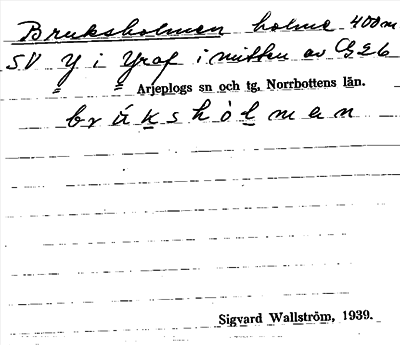 Bruksholmen holme 400 m
SV Y i Yraf i mitten av G2b
Arjeplogs sn och tg, Norrbottens län.
brúkshòlmen
Sigvard Wallström, 1939.